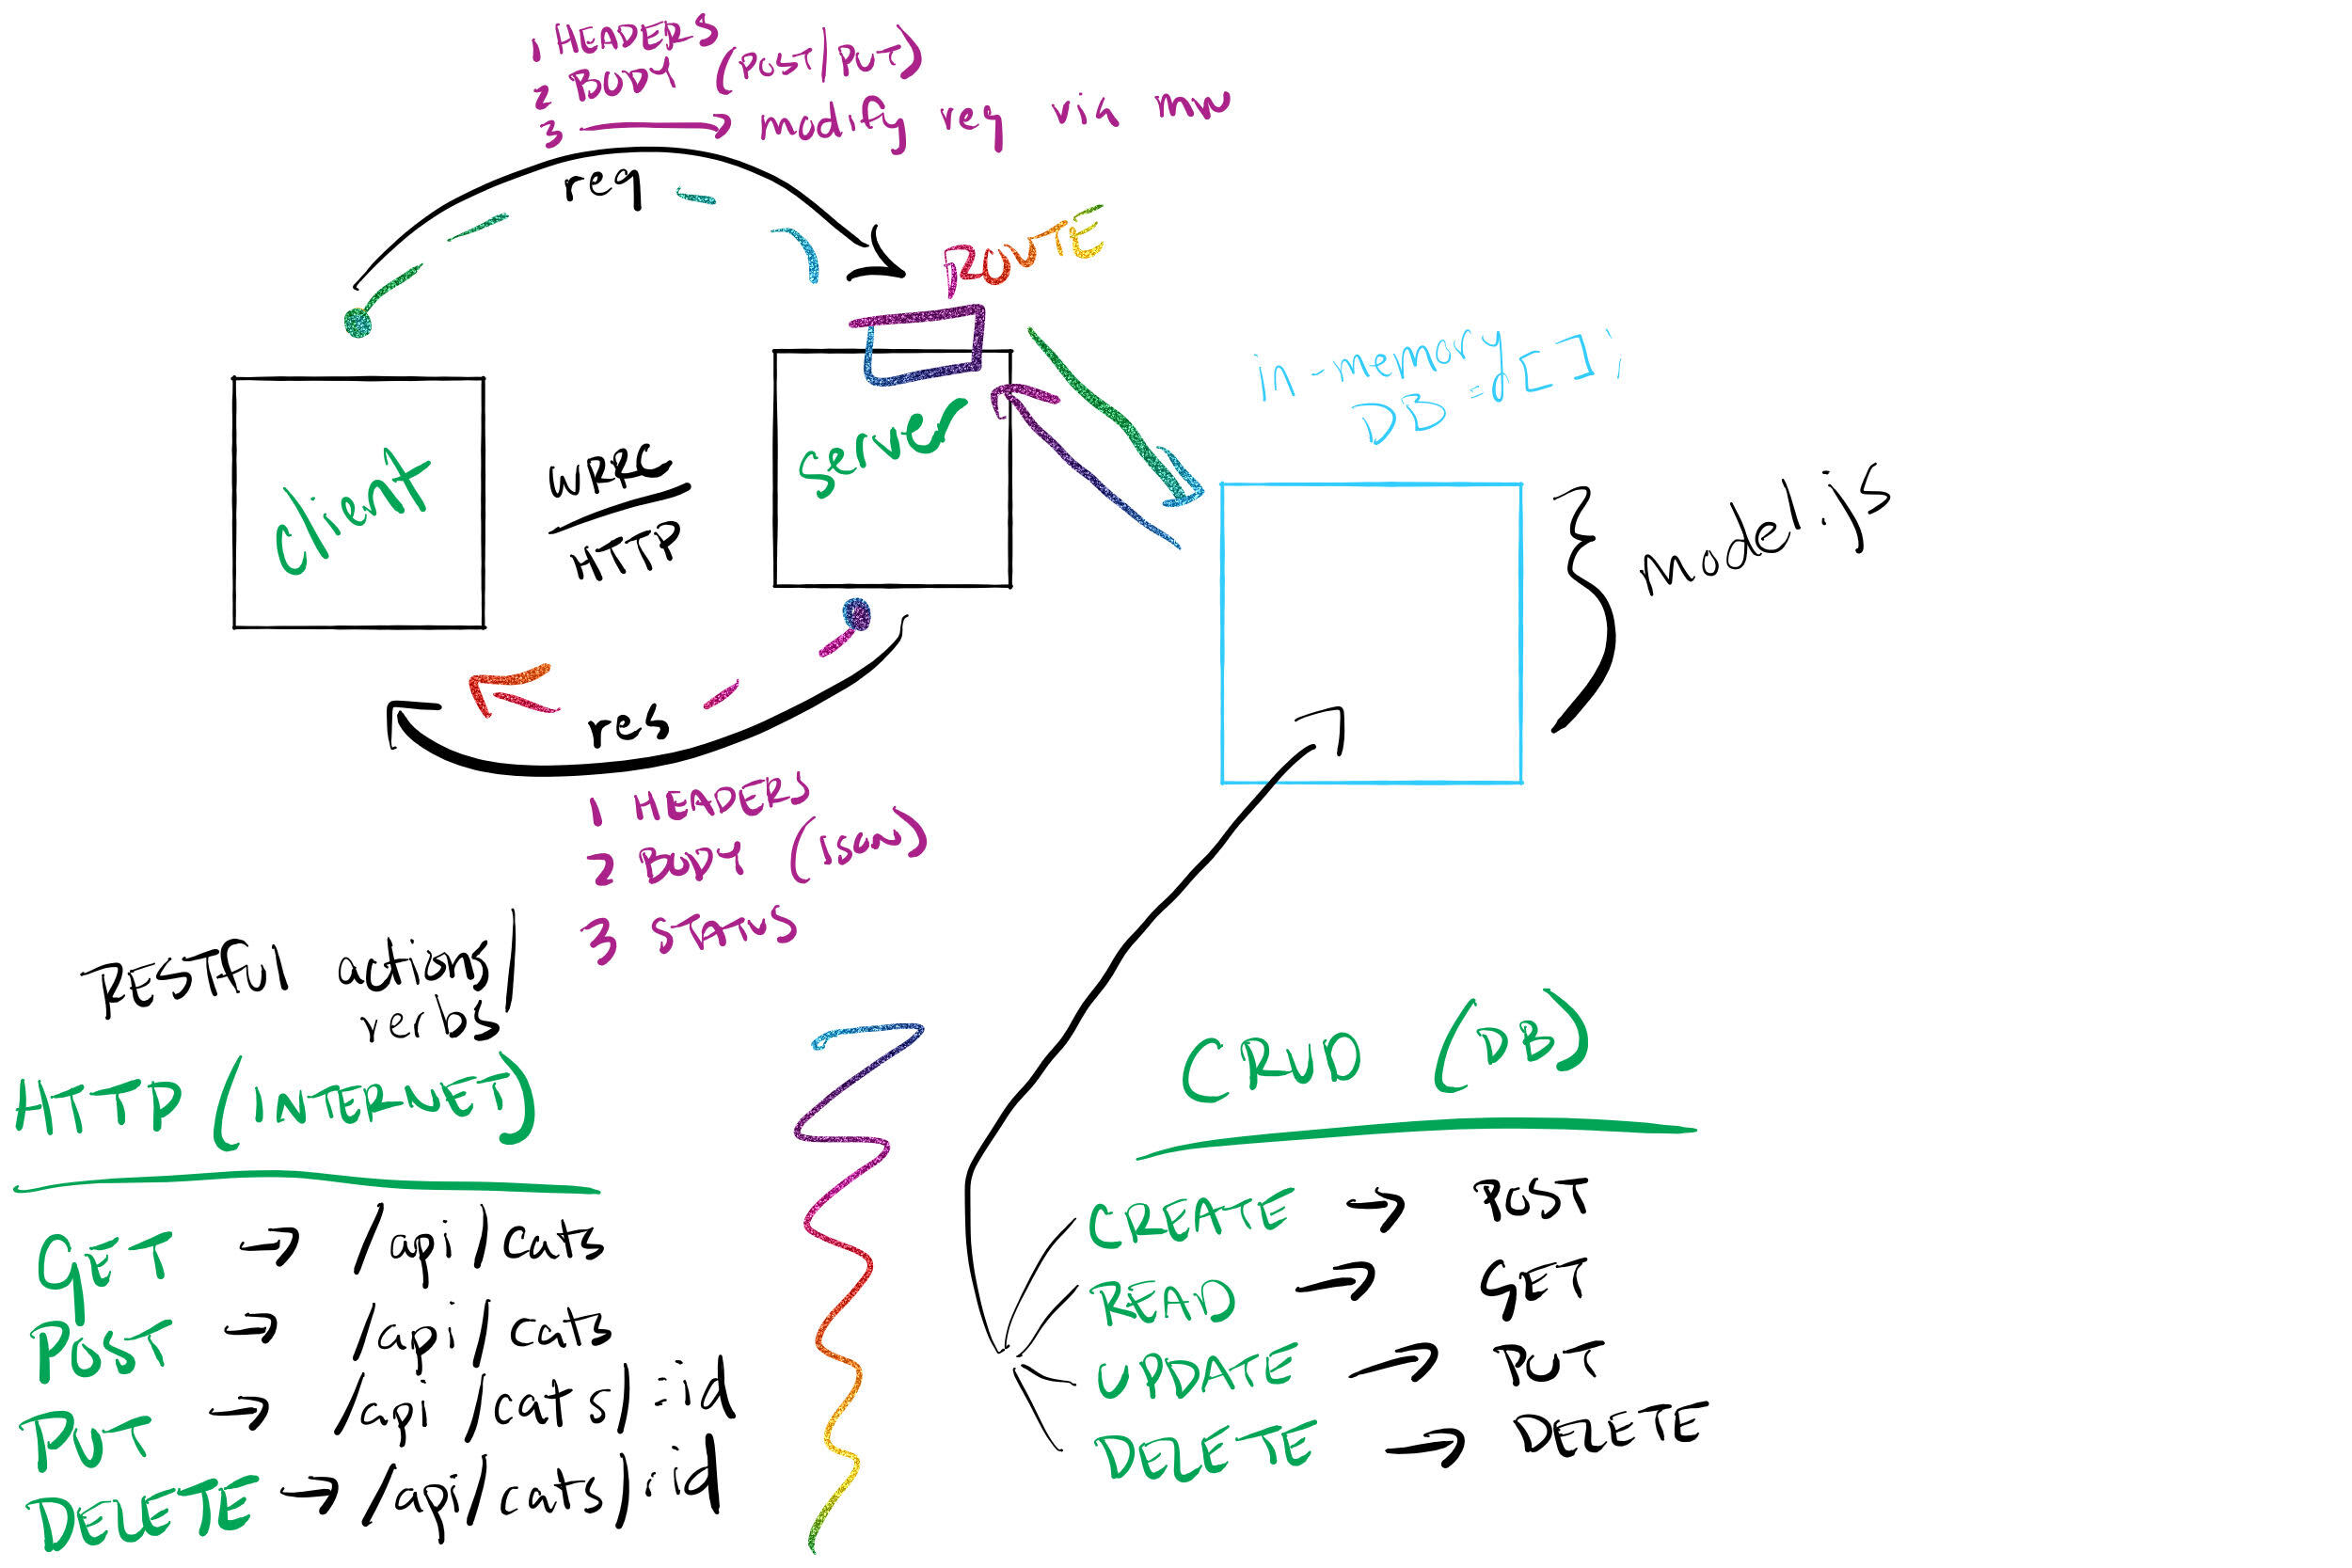 1 HEADERS
2 BODY (POST/PUT)
3 → modify req via mw
req
ROUTE
in-memory
DB = [ ];
client
WRRC
HTTP
server
model.js
res
1 HEADERS
2 BODY (JSON)
3 STATUS
RESTful actions/
verbs
HTTP (INTERNET)
GET → /api/cats
POST → /api/cats
PUT → /api/cats/:id
DELETE → /api/cats/:id
CRUD (DB)
CREATE → POST
READ → GET
UPDATE → PUT
DELETE → DELETE